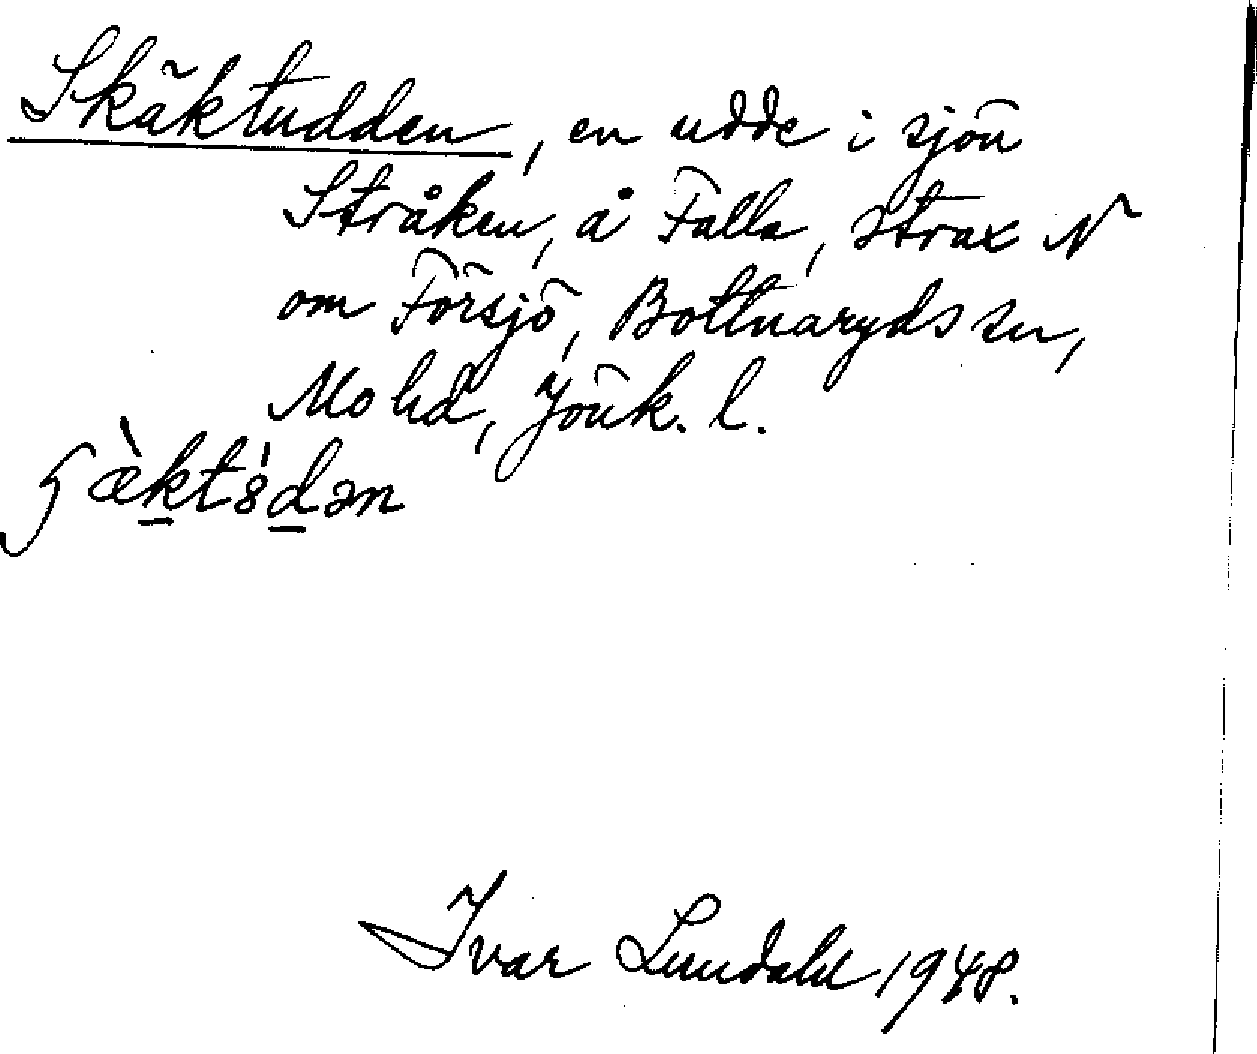 Skäktudden, en udde i sjön
Stråken, å Falla, strax N
om Försjö, Bottnaryds sn,
Mo hd, Jönk. l.
ʃæ̀ktɞ́dən
Ivar Lundahl 1948.